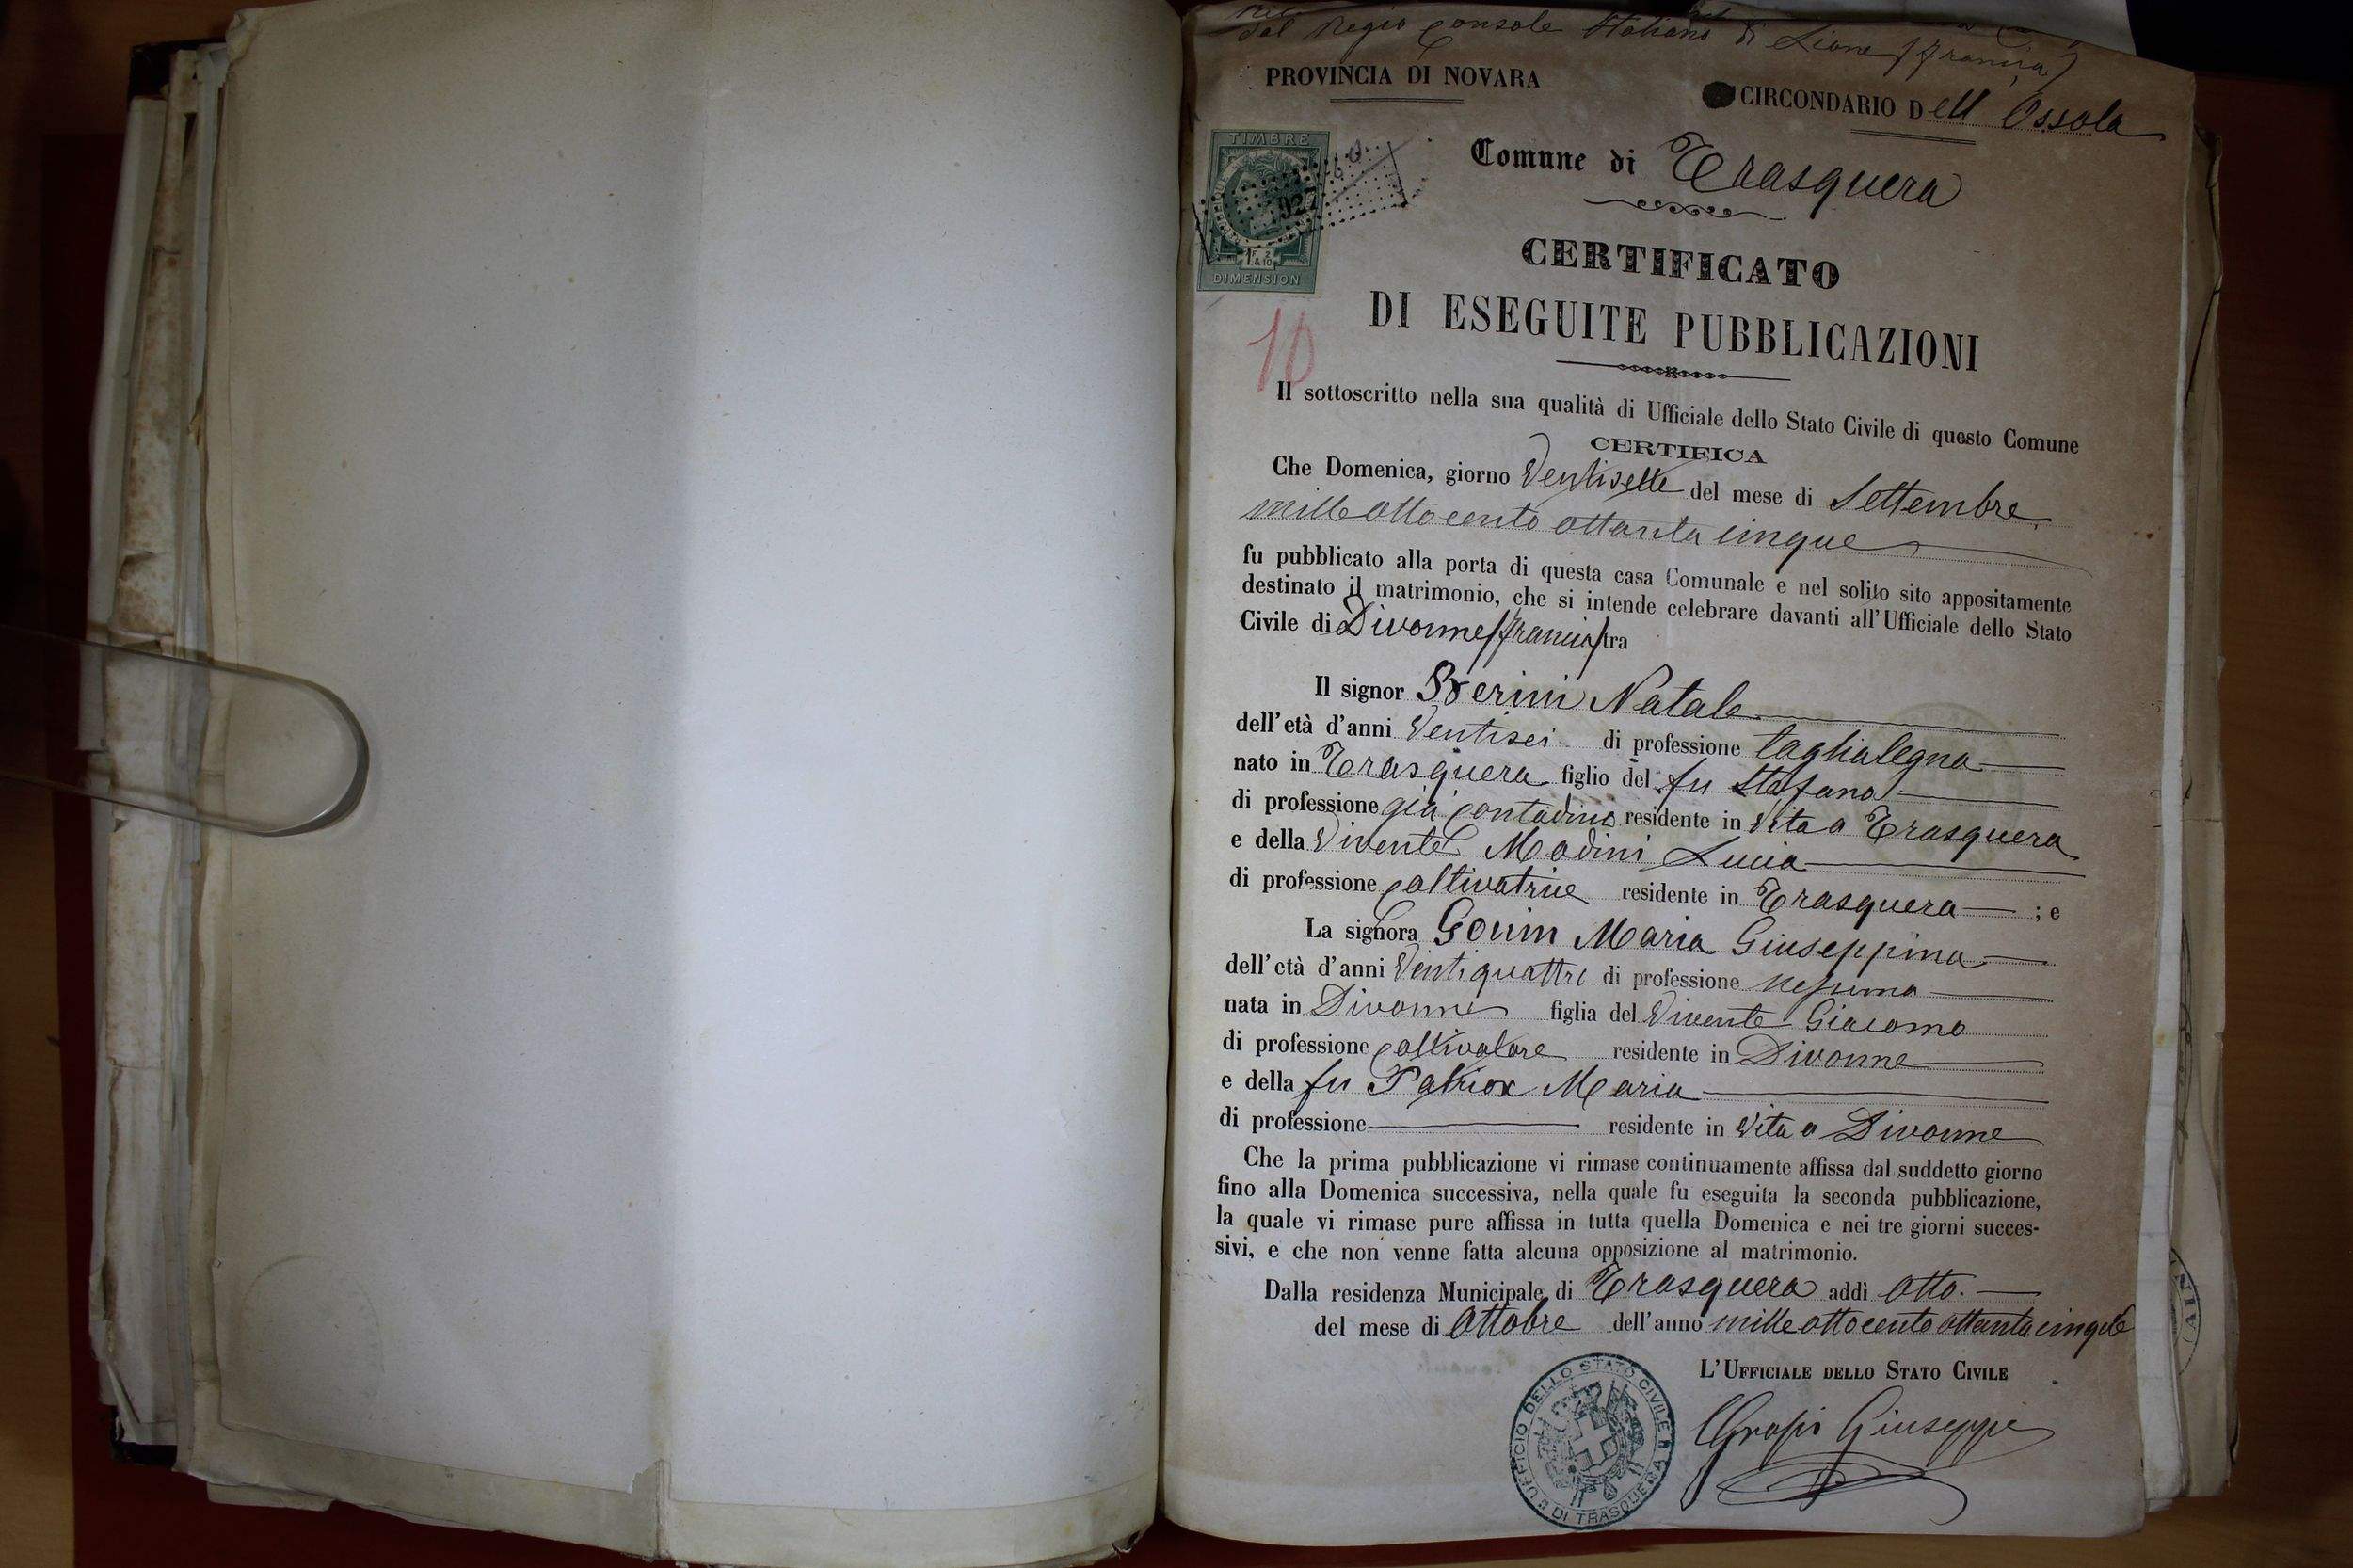 dal Regio Console Italiano di Lione (Francia)
PROVINCIA DI NOVARA
CIRCONDARIO Dell Ossola
TIMBRE
927
1F 2 & 10
DIMENSION
Comune di Trasquera
CERTIFICATO
DI ESEGUITE PUBBLICAZIONI
10
Il sottoscritto nella sua qualità di Ufficiale dello Stato Civile di questo Comune
CERTIFICA
Che Domenica, giorno Ventisette del mese di Settembre
mille otto cento ottanta cinque
fu pubblicato alla porta di questa casa Comunale e nel solito sito appositamente
destinato il matrimonio, che si intende celebrare davanti all'Ufficiale dello Stato
Civile di Divonne (Francia) tra
Il signor Natale
dell'età d'anni Ventisei di professione taglialegna
nato in Trasquera figlio del fu Stefano
di professione già contadino residente in vita a Trasquera
e della Vivente Madini Lucia
di professione coltivatrice residente in Trasquera ; e
La signora Gouin Maria Giuseppina
dell'età d'anni Ventiquattro di professione nessuna
nata in Divonne figlia del Vivente Giacomo
di professione coltivatore residente in Divonne
e della fu Maria
di professione residente in vita a Divonne
Che la prima pubblicazione vi rimase continuamente affissa dal suddetto giorno
fino alla Domenica successiva, nella quale fu eseguita la seconda pubblicazione,
la quale vi rimase pure affissa in tutta quella Domenica e nei tre giorni succes-
sivi, e che non venne fatta alcuna opposizione al matrimonio.
Dalla residenza Municipale di Trasquera addì otto.
del mese di Ottobre dell'anno mille ottocento ottanta cinque
L'UFFICIALE DELLO STATO CIVILE
UFFICIO DELLO STATO CIVILE DI TRASQUERA
Giuseppe